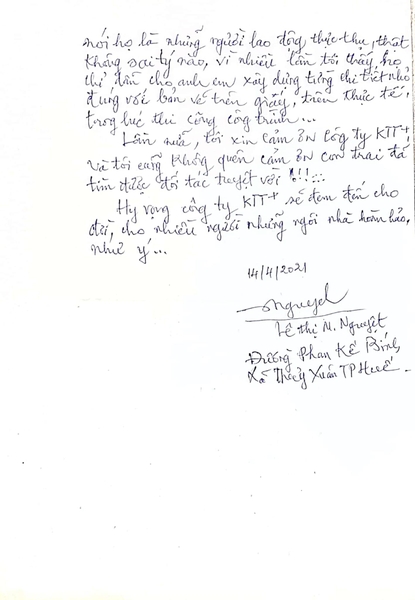 nói họ là những người lao động thực thụ, thật
không sai tý nào, vì nhiều lần tôi thấy họ
chỉ dẫn cho anh em xây dựng từng chi tiết nhỏ
đúng với bản vẽ trên giấy, trên thực tế,
trong lúc thi công công trình...
Lần nữa, tôi xin cảm ơn Công ty KTT+
và tôi cũng không quên cảm ơn con trai đã
tìm được đối tác tuyệt vời !!!...
Hy vọng công ty KTT+ sẽ đem đến cho
đời, cho nhiều người những ngôi nhà hoàn hảo,
như ý...
14/4/2021
Nguyet
Lê Thị N. Nguyệt
Đường Phan Kế Bính,
Xã Thủy Xuân TP Huế.